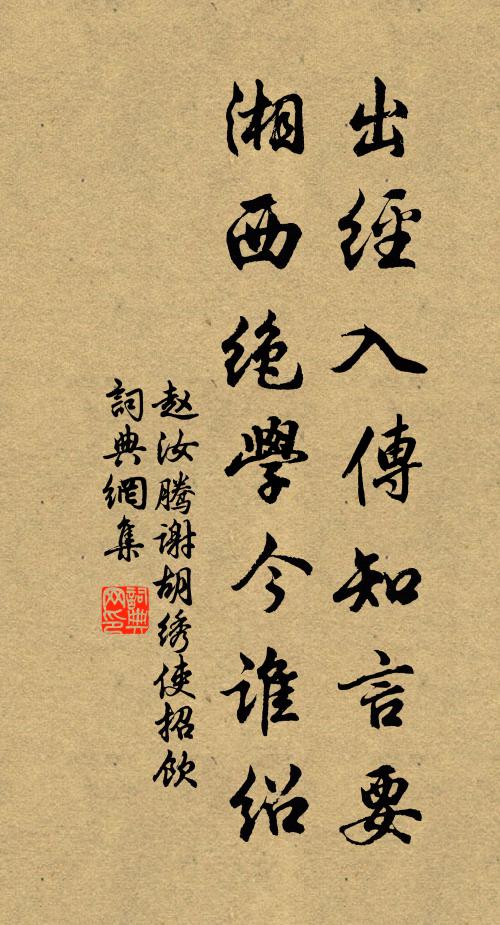 出經入傳知言要
湘西絶學今誰紹
赵汝腾谢胡绣使招饮
詞典網集
詞典网印